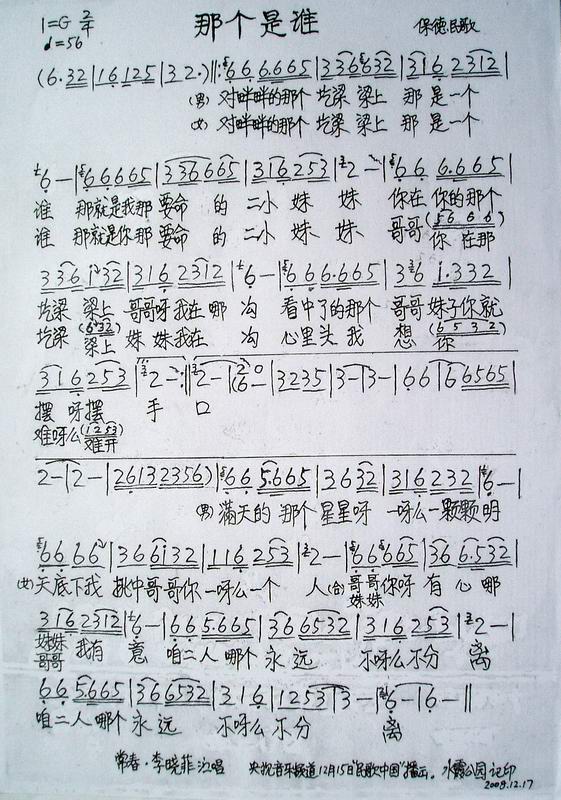 1=G 2/4 那个是谁 保德民歌
♩=56
(6·32|16125|32·)‖:66 6·665|336632|316 2312|
(男) 对畔畔的那个 圪梁 梁上 那 是一个
(女) 对畔畔的那个 圪梁 梁上 那 是一个
6—|66665|336665|316253|2—|66 6·665|
谁 那就是我那 要命 的 二小 妹 妹 你在 你的那个
谁 那就是你那 要命 的 二小 妹 妹 哥哥(56 6 6) 你 在那
336 132|316 2312|6—|66 6·665|336 1·332|
圪梁 梁上 哥哥呀 我在 哪 沟 看中了的那个 哥哥 妹子你就
圪梁 (6 32) 梁上 妹 妹我在 沟 心里头 我 想 (6 5 3 2) 你
316253|2—:‖2—|2 0 (6—|3235|3—|3—|66|666565|
摆 呀摆 手 口
难呀么(1253)难开
2—|2—|26132356)|66 5·665|3632|316232|6—|
(男)满天的 那个 星星呀 一呀么一颗颗明
66 66|366132|116253|2—|66 665|36 6·532|
(女)天底下我 挑中哥哥你 一呀么一个 人(合)哥哥你呀 有 心 哪
妹妹
316 2312|6—|66 5·665|366532|316253|2—|
妹妹 我有 意 咱二人 哪个 永 远 不呀么不分 离
哥哥
66 5·665|366532|316|1253|3—|6—|6—‖
咱二人 哪个 永 远 不呀么 不分 离
常春·李晓菲演唱 央视音乐频道12月15日"民歌中国"播出。水露公园记印
2008.12.17